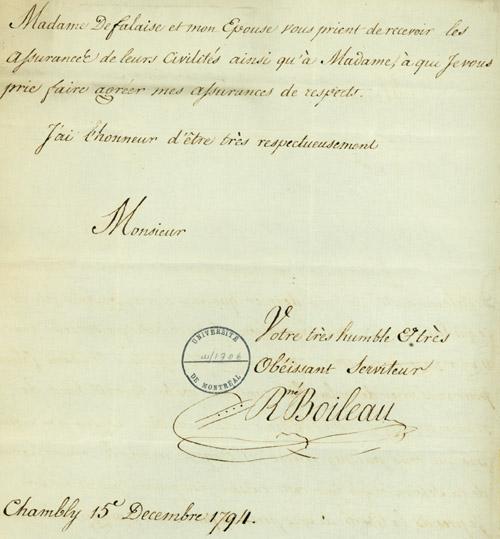 Madame Defalaise et mon Epouse vous prient de recevoir les
assurances de leurs Civilités ainsi qu'à Madame, à qui Je vous
prie faire agréer mes assurances de respects.
J'ai l'honneur d'être très respectueusement
Monsieur
Votre très humble & très
Obéissant Serviteur
Rmé Boileau
UNIVERSITÉ
DE MONTRÉAL
Chambly 15e Decembre 1794.